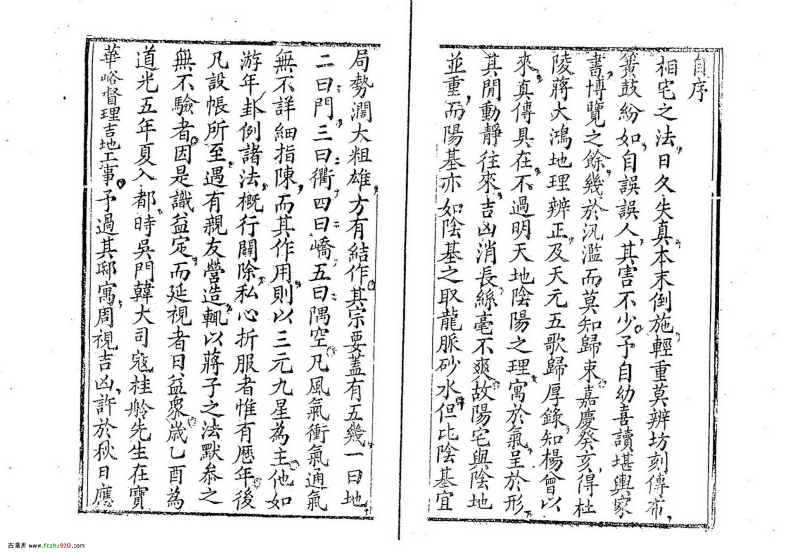 自序
相宅之法日久失真本末倒施輕重莫辨坊刻傳布
簧鼓紛如自誤誤人其害不少予自幼喜讀堪輿家
書博覽之餘幾於汎濫而莫知歸束嘉慶癸亥得杜
陵蔣大鴻地理辨正及天元五歌歸厚錄知楊曾以
來真傳具在不過明天地陰陽之理寓於氣呈於形
其間動靜往來吉凶消長絲毫不爽故陽宅與陰地
並重而陽基亦如陰基之取龍脈砂水但比陰基宜
局勢濶大粗雄方有結作其宗要蓋有五幾一曰地
二曰門三曰衢四曰嶠五曰隅空凡風氣衝氣通氣
無不詳細指陳而其作用則以三元九星為主他如
游年卦例諸法概行闢除私心折服者惟有歷年後
凡設帳所至遇有親友營造輒以蔣子之法默參之
無不驗者因是識益定而延視者日益衆歲乙酉為
道光五年夏入都時吳門韓大司寇桂舲先生在寶
華峪督理吉地工事予過其邸寓周視吉凶許於秋日應
古易庠 www.fczhu920.com